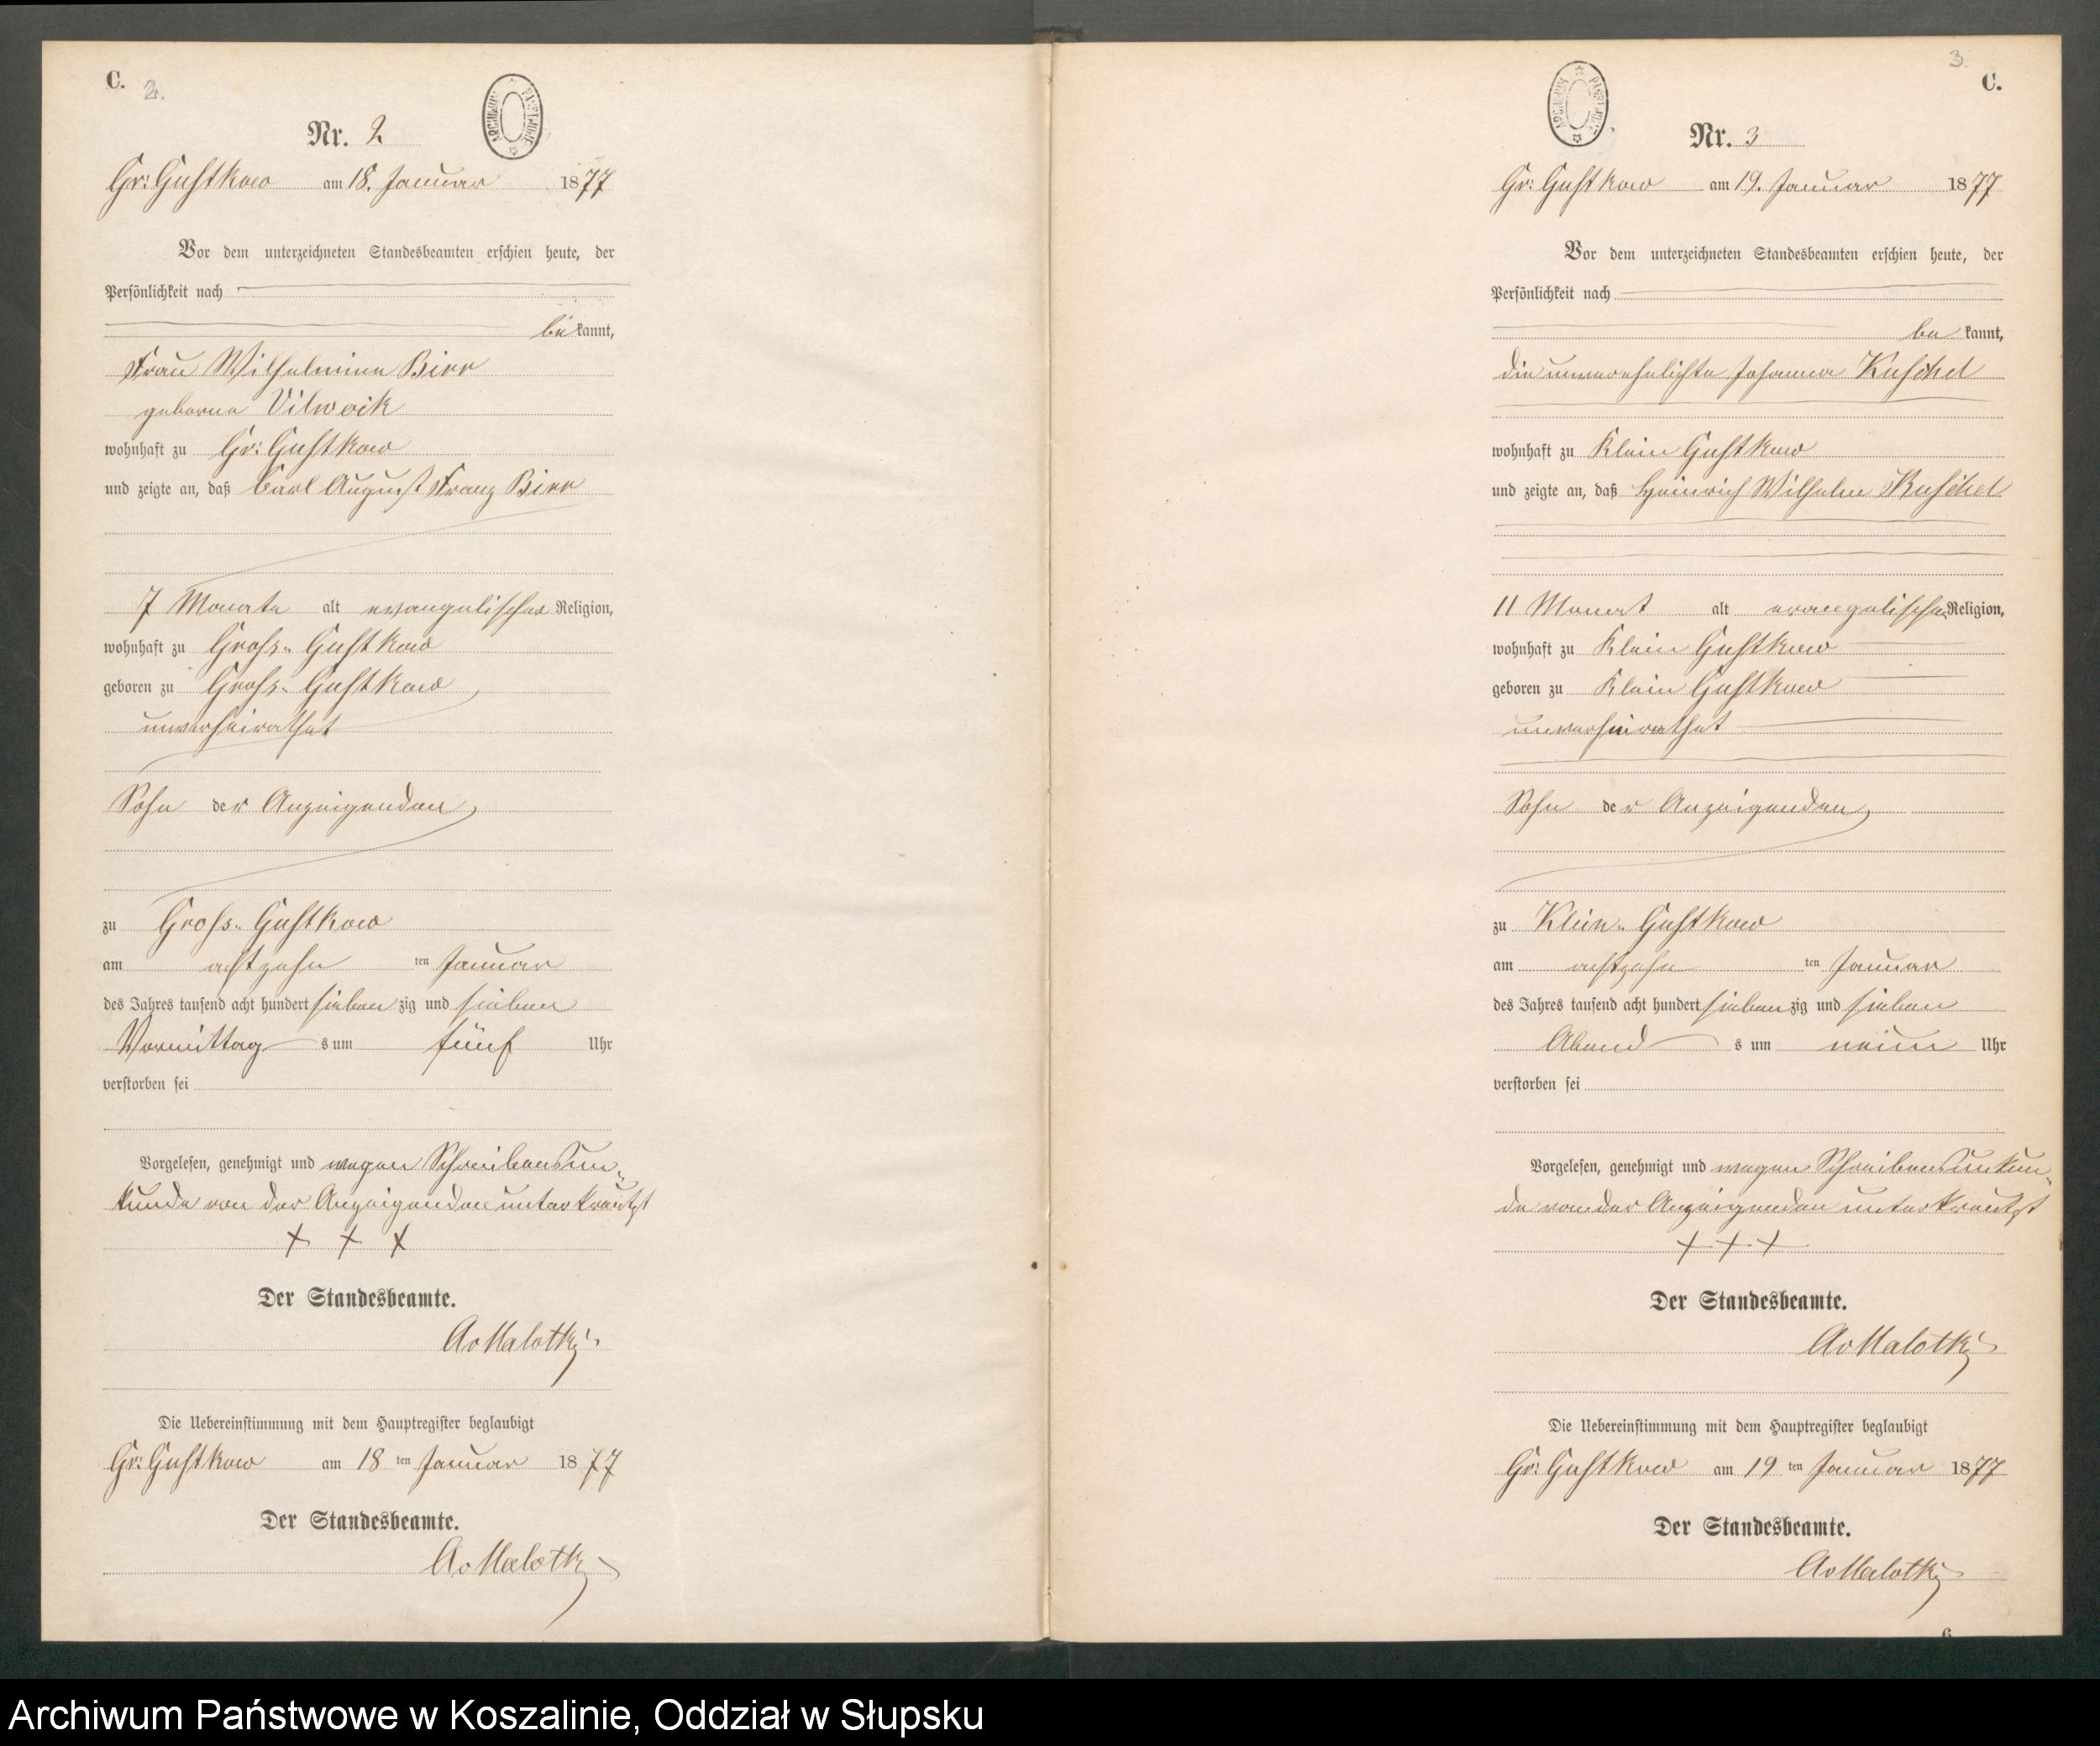 C.
2.
ARCHIWUM PAŃSTWOWE
Nr. 2
Gr: Gustkow am 18. Januar 1877
Vor dem unterzeichneten Standesbeamten erschien heute, der
Persönlichkeit nach
be kannt,
Frau Wilhelmine Birr
geborne Vilwock
wohnhaft zu Gr: Gustkow
und zeigte an, daß Carl August Franz Birr
7 Monate alt evangelischer Religion,
wohnhaft zu Gross- Gustkow
geboren zu Gross- Gustkow,
unverheirathet
Sohn der Anzeigenden,
zu Gross- Gustkow
am achtzehn ten Januar
des Jahres tausend acht hundert sieben zig und sieben
Vormittag s um fünf Uhr
verstorben sei
Vorgelesen, genehmigt und wegen Schreibensun-
kunde von der Anzeigenden unterkreutzt
+ + +
Der Standesbeamte.
AvMalotki
Die Uebereinstimmung mit dem Hauptregister beglaubigt
Gr: Gustkow am 18 ten Januar 1877
Der Standesbeamte.
AvMalotki
3
C.
ARCHIWUM PAŃSTWOWE
Nr. 3
Gr: Gustkow am 19. Januar 1877
Vor dem unterzeichneten Standesbeamten erschien heute, der
Persönlichkeit nach
be kannt,
die unverehelichte Johanna Kuschel
wohnhaft zu Klein Gustkow
und zeigte an, daß Heinrich Wilhelm Kuschel
11 Monat alt evangelischer Religion,
wohnhaft zu Klein Gustkow
geboren zu Klein Gustkow
unverheirathet
Sohn der Anzeigenden,
zu Klein- Gustkow
am achtzehn ten Januar
des Jahres tausend acht hundert sieben zig und sieben
Abend s um neun Uhr
verstorben sei
Vorgelesen, genehmigt und wegen Schreibensunkun-
de von der Anzeigenden unterkreutzt
+ + +
Der Standesbeamte.
AvMalotki
Die Uebereinstimmung mit dem Hauptregister beglaubigt
Gr: Gustkow am 19 ten Januar 1877
Der Standesbeamte.
AvMalotki
6
Archiwum Państwowe w Koszalinie, Oddział w Słupsku